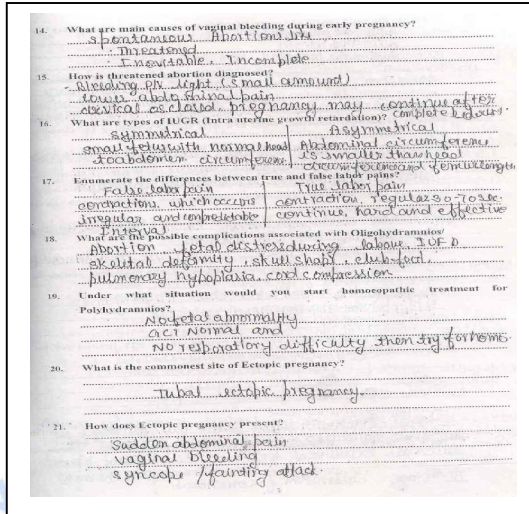 14. What are main causes of vaginal bleeding during early pregnancy?
Spontaneous Abortions like
Threatened
Inevitable, Incomplete
15. How is threatened abortion diagnosed?
- Bleeding P/v light (small amount)
lower abdominal pain
cervical os closed, pregnancy may continue after
complete bed rest.
16. What are types of IUGR (Intra uterine growth retardation)?
Symmetrical | Asymmetrical
small fetus with normal head | Abdominal circumference
to abdomen circumference | is smaller than head
circumference and femur length
17. Enumerate the differences between true and false labor pains?
False labor pain | True labor pain
contractions, which occurs | contraction, regular 30-70 sec.
irregular and | continue, hard and effective
Interval
18. What are the possible complications associated with Oligohydramnios/
Abortion fetal distress during labour, IUFD
skeletal deformity, skull shape, club-foot,
pulmonary hypoplasia, cord compression
19. Under what situation would you start homoeopathic treatment for
Polyhydramnios?
No fetal abnormality
GCT Normal and
NO resporatory difficulty then try for homeo.
20. What is the commonest site of Ectopic pregnancy?
Tubal ectopic pregnancy.
21. How does Ectopic pregnancy present?
Sudden abdominal pain
vaginal bleeding
syncope / fainting attack.